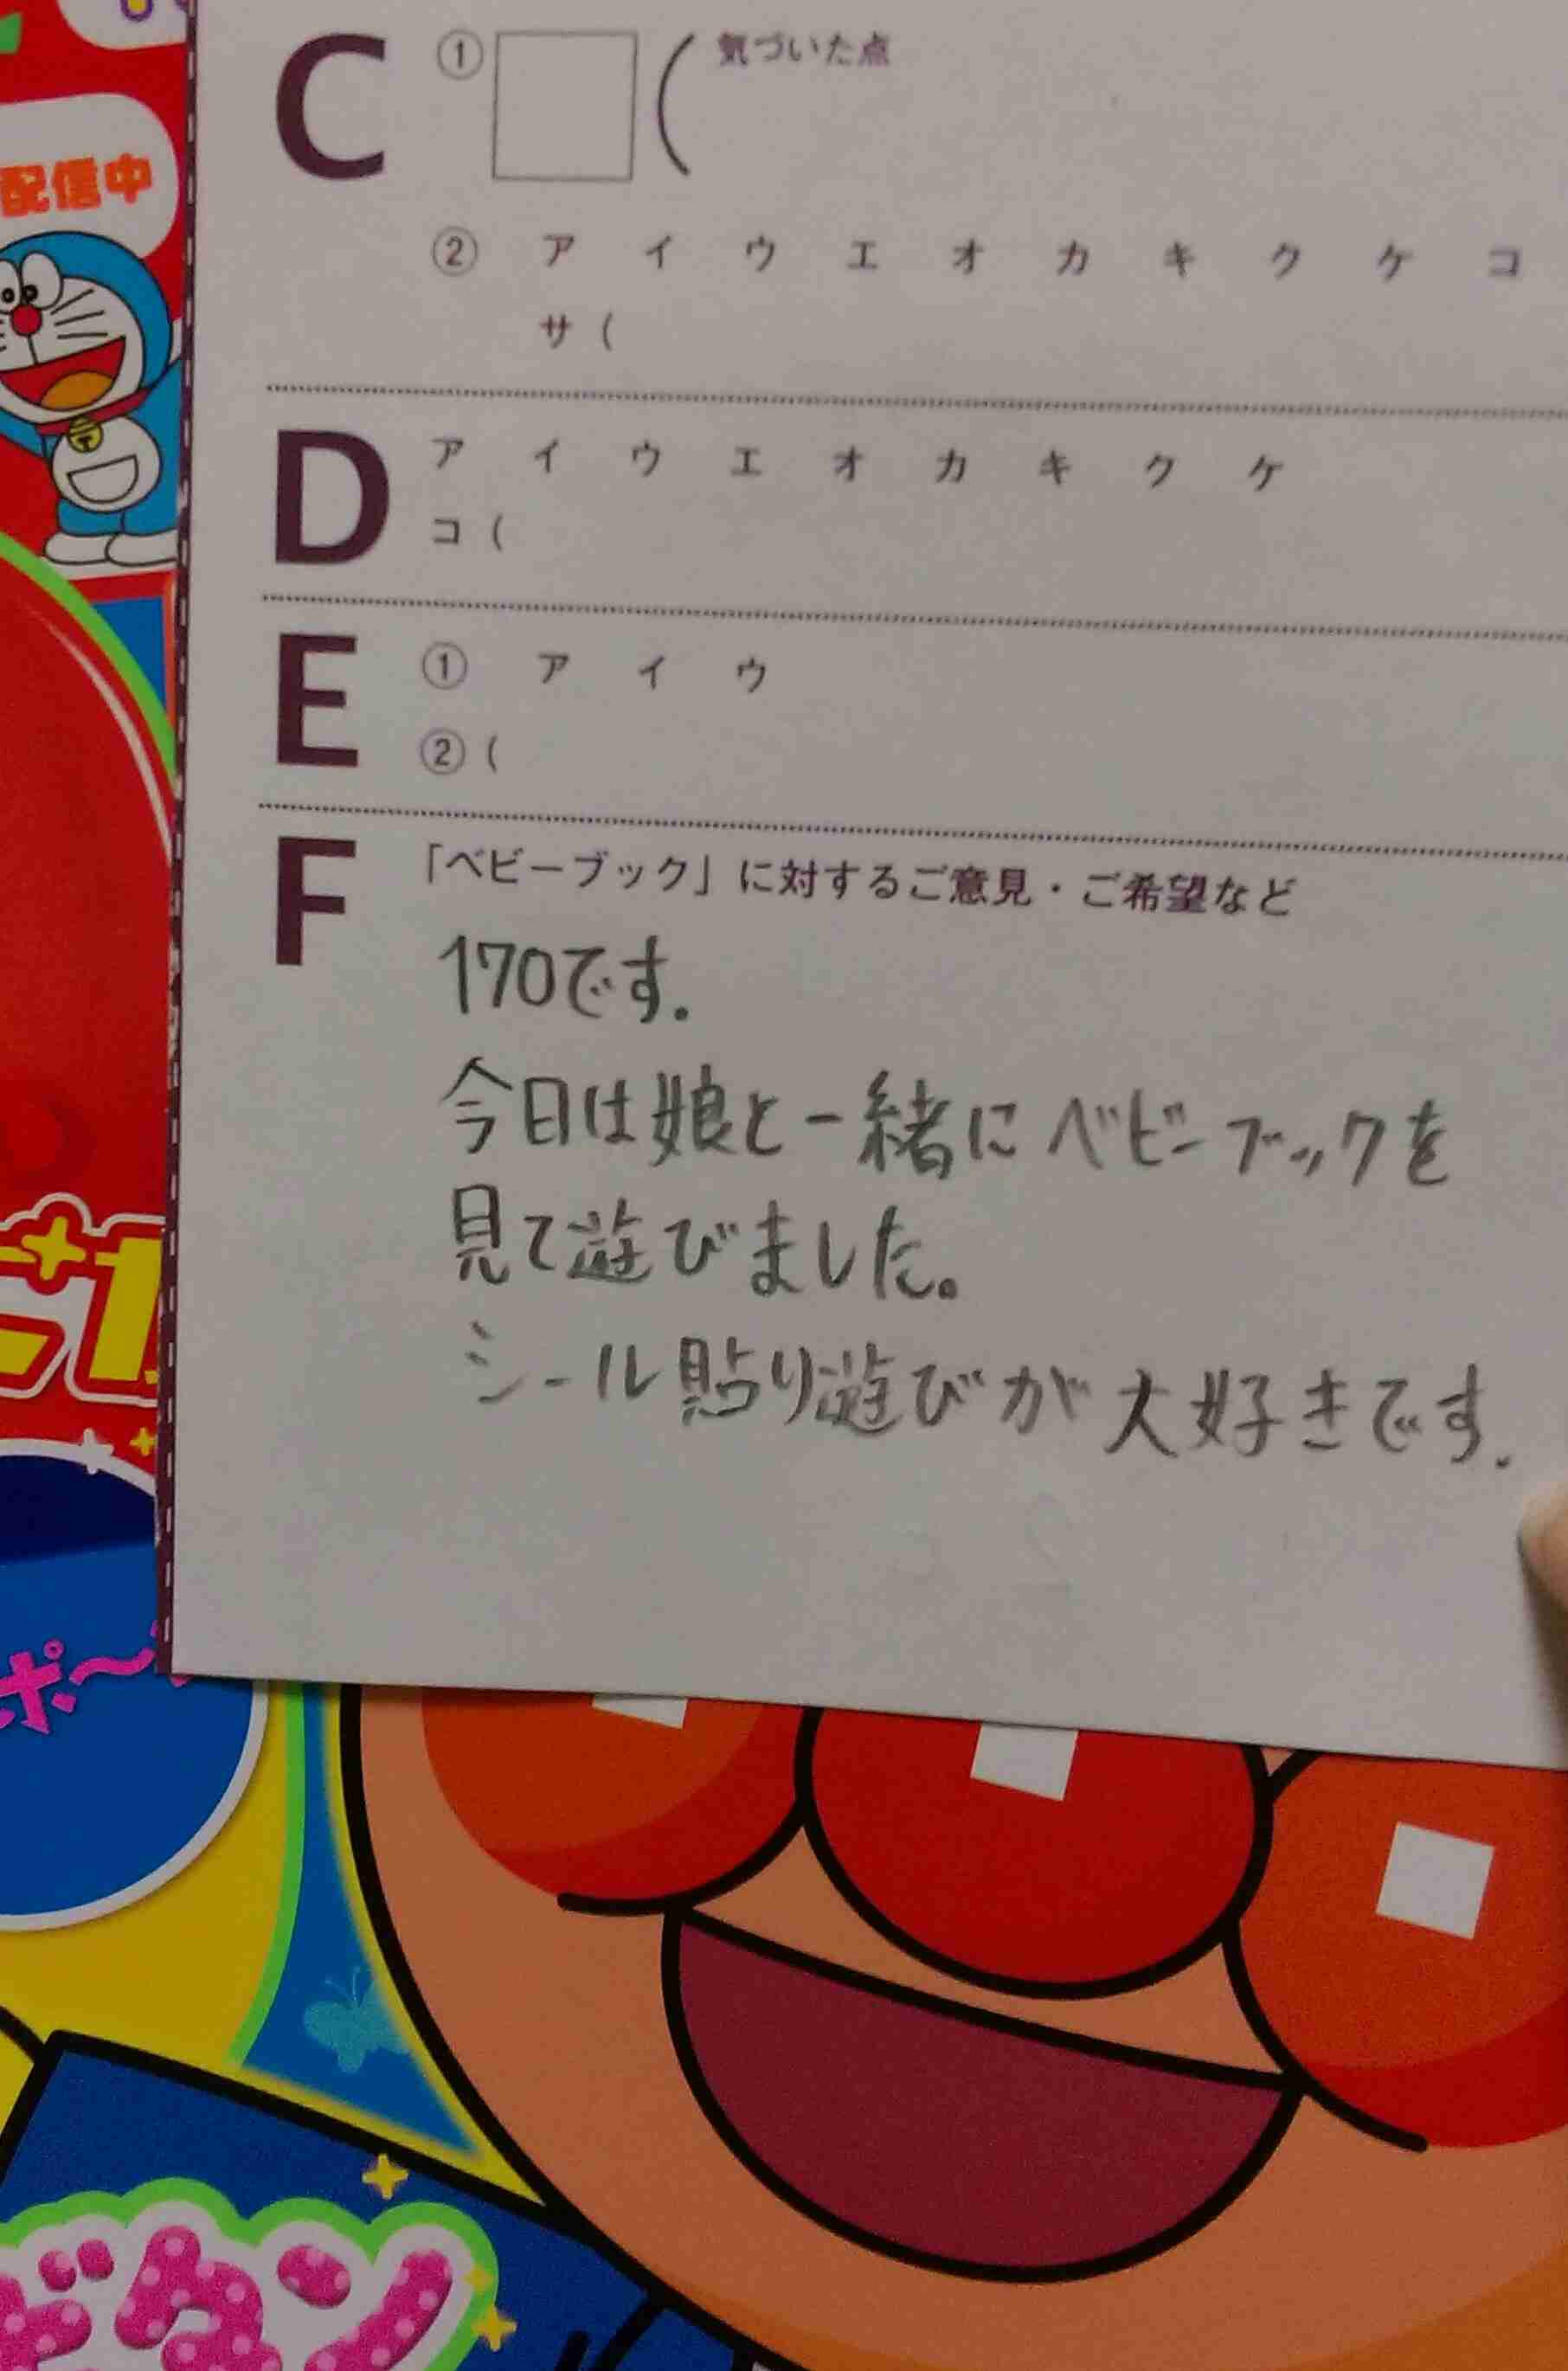 配信中
C ① ( 気づいた点
② ア イ ウ エ オ カ キ ク ケ コ
サ (
D ア イ ウ エ オ カ キ ク ケ
コ (
E ① ア イ ウ
② (
F 「ベビーブック」に対するご意見・ご希望など
170です.
今日は娘と一緒にベビーブックを
見て遊びました。
シール貼り遊びが大好きです.